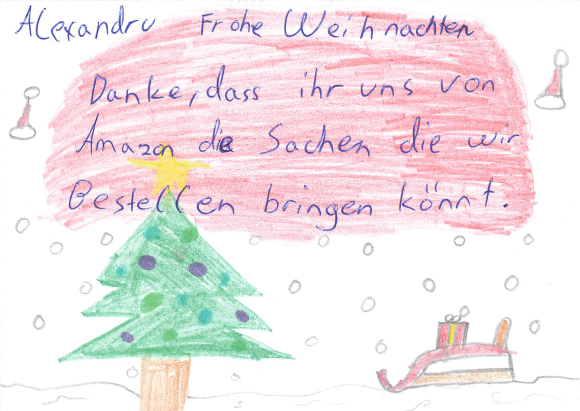 Alexandru Frohe Weihnachten
Danke, dass ihr uns von
Amazon die Sachen die wir
Bestellen bringen könnt.